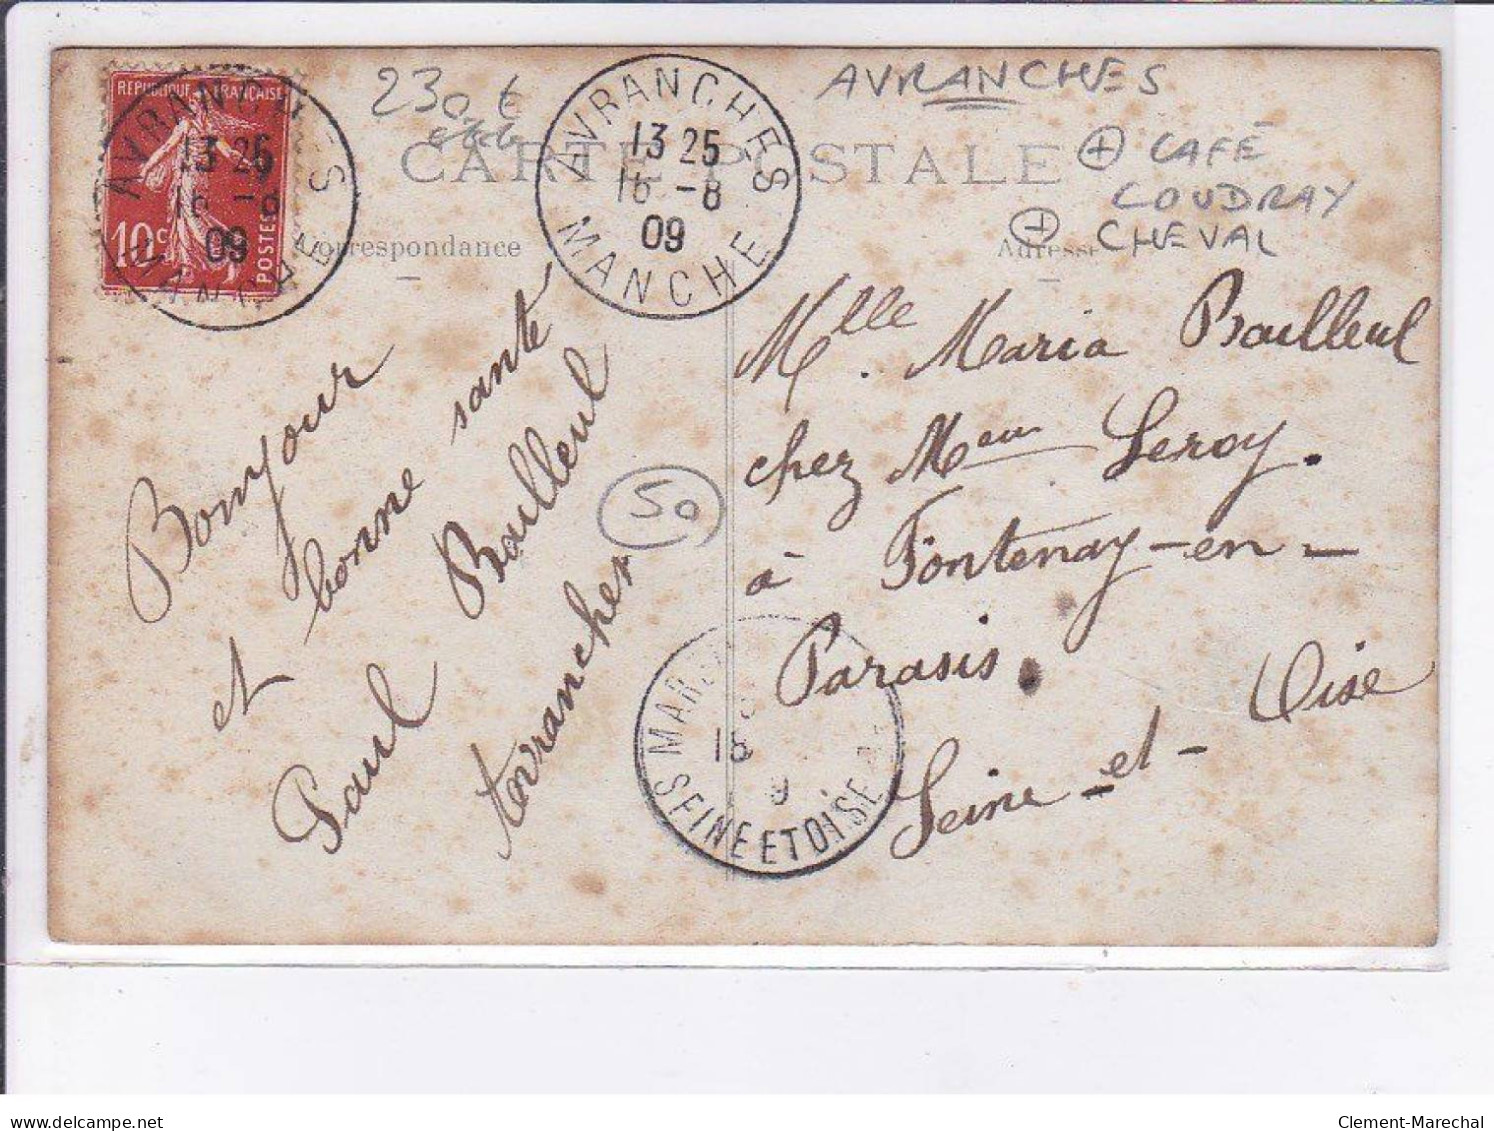 RÉPUBLIQUE FRANÇAISE
10c
POSTES
AVRANCHES
13 25
16 -8
09
MANCHE
230 t
AVRANCHES
13 25
16 -8
09
MANCHE
AVRANCHES
+ CAFÉ
COUDRAY
+ CHEVAL
CARTE POSTALE
Correspondance
Adresse
Bonjour
et bonne santé
Paul Bailleul
Avranches
50
Mlle. Maria Bailleul
chez Mme Leroy.
à Fontenay-en-
Parasis.
Seine-et-Oise
MAR
18
9
SEINE ET OISE
delcampe.net
Clement-Marechal